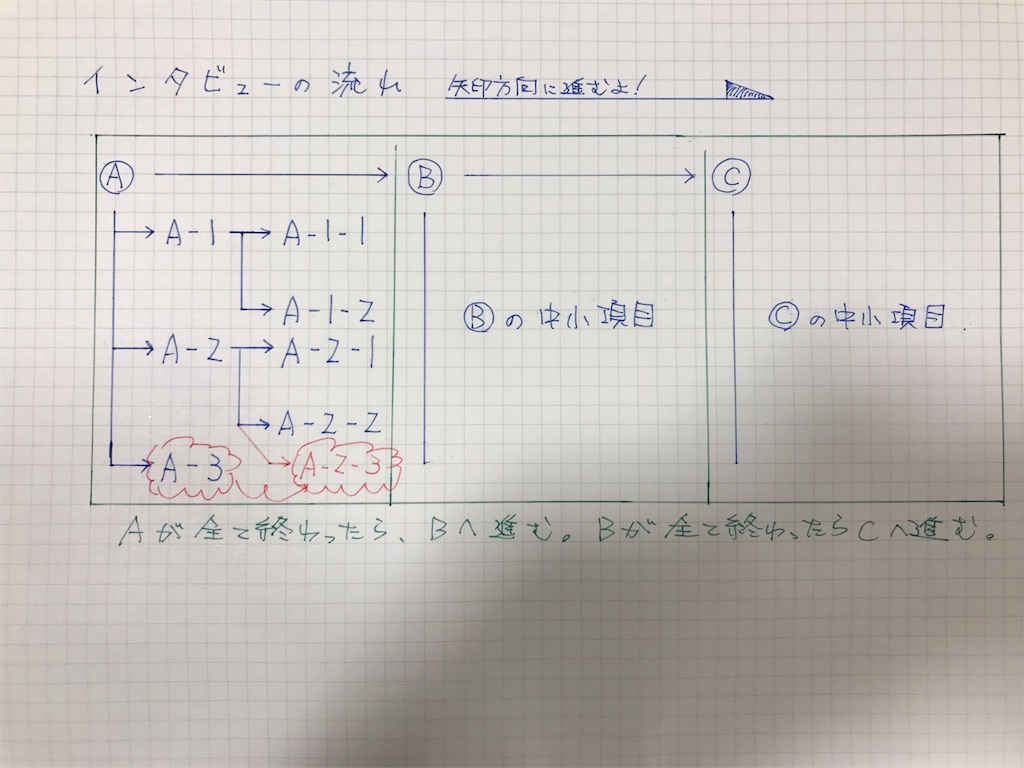 インタビューの流れ 矢印方向に進むよ!
Ⓐ Ⓑ Ⓒ
A-1 A-1-1
A-1-2
Ⓑの中小項目 Ⓒの中小項目
A-2 A-2-1
A-2-2
A-3 A-2-3
Aが全て終わったら、Bへ進む。Bが全て終わったらCへ進む。